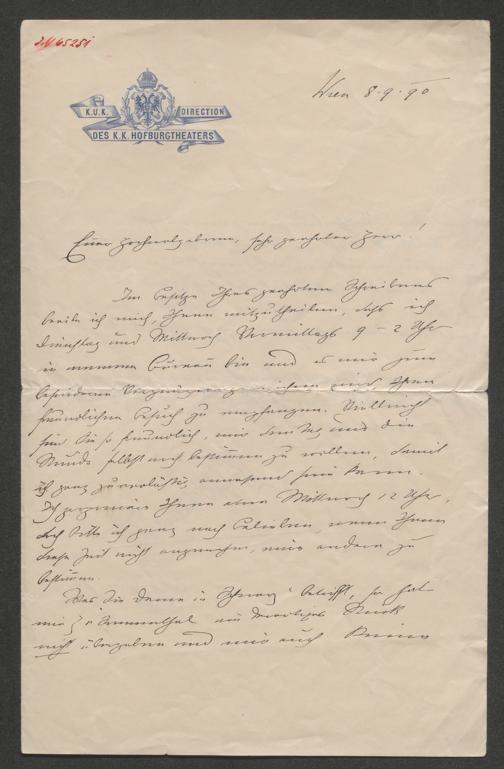 K.U.K. DIRECTION
DES K.K. HOFBURGTHEATERS
Wien 8.9.90
Euer Hochwolgeboren, sehr geehrter Herr!
Im Besitze Ihres geehrten Schreibens
beeile ich mich, Ihnen mitzutheilen, dass ich
Dienstag und Mittwoch Vormittags 9–2 Uhr
in meinem Bureau bin und es mir zum
besonderen Vergnügen gereichen wird Ihren
freundlichen Besuch zu empfangen. Vielleicht
sind Sie so freundlich, mir den Tag und die
Stunde selbst noch bestimmen zu wollen, damit
ich ganz zuverlässig anwesend sein kann.
Ihnen etwa Mittwoch 12 Uhr,
doch bitte ich ganz nach Belieben, wenn Ihnen
diese Zeit nicht angenehm, eine andere zu
bestimmen.
Was die Dame in Schwarz betrifft, so hat
mir ein Stück
nicht übergeben und mir auch keine